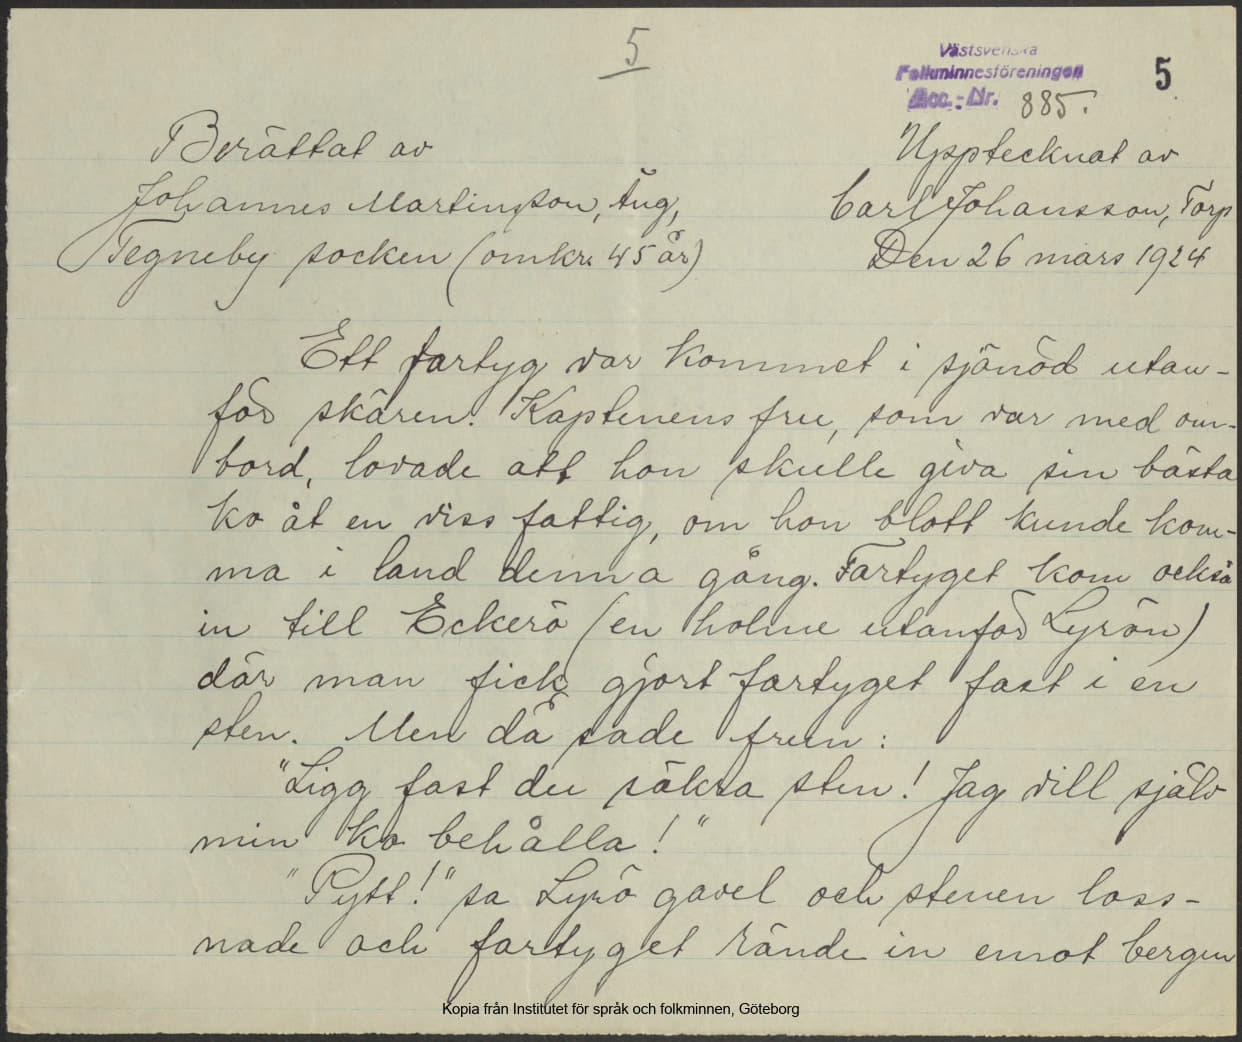 5
Västsvenska
Folkminnesföreningen
Acc.-Nr. 885.
5
Berättat av
Johannes Martinsson, Äng,
Tegneby socken (omkr. 45 år)
Upptecknat av
Carl Johansson, Torp
Den 26 mars 1924
Ett fartyg var kommet i sjönöd utan-
för skären. Kaptenens fru, som var med om-
bord, lovade att hon skulle giva sin bästa
ko åt en viss fattig, om hon blott kunde kom-
ma i land denna gång. Fartyget kom också
in till Eckerö (en holme utanför Lyrön)
där man fick gjort fartyget fast i en
sten. Men då sade frun:
"Ligg fast du säkra sten! Jag vill själv
min ko behålla!"
"Pytt!" sa Lyrö gavel och stenen loss-
nade och fartyget rände in emot bergen
Kopia från Institutet för språk och folkminnen, Göteborg